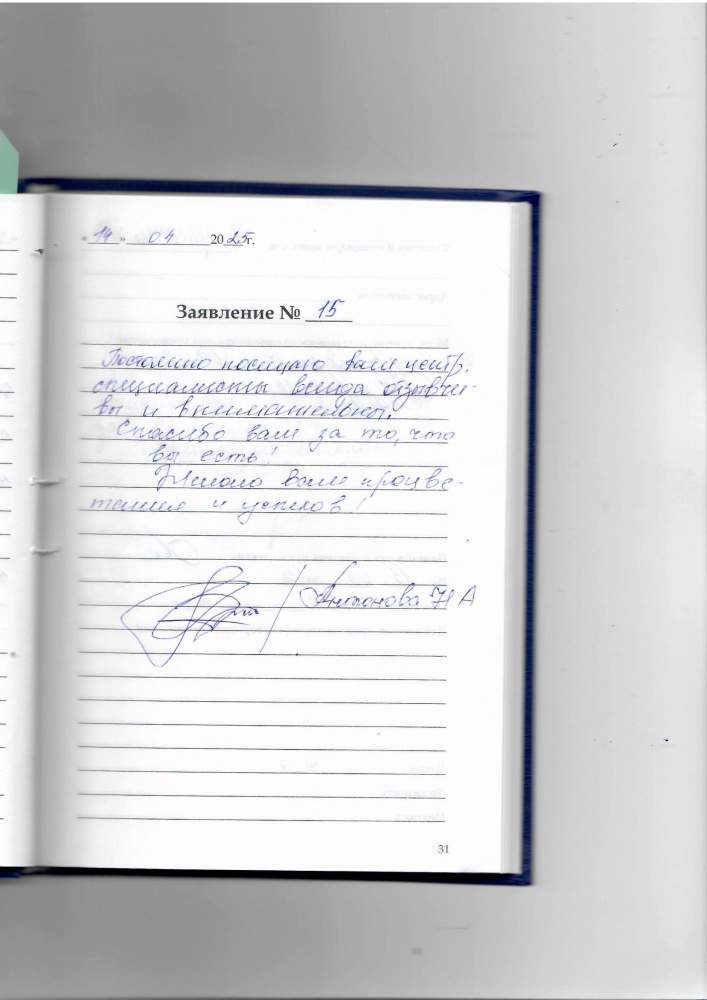 «14» 04 2025г.
Заявление № 15
Постоянно посещаю ваш центр,
специалисты всегда отзывчи-
вы и внимательны.
Спасибо вам за то, что
вы есть!
Желаю вам процве-
тания и успехов!
Антонова Н.А
31